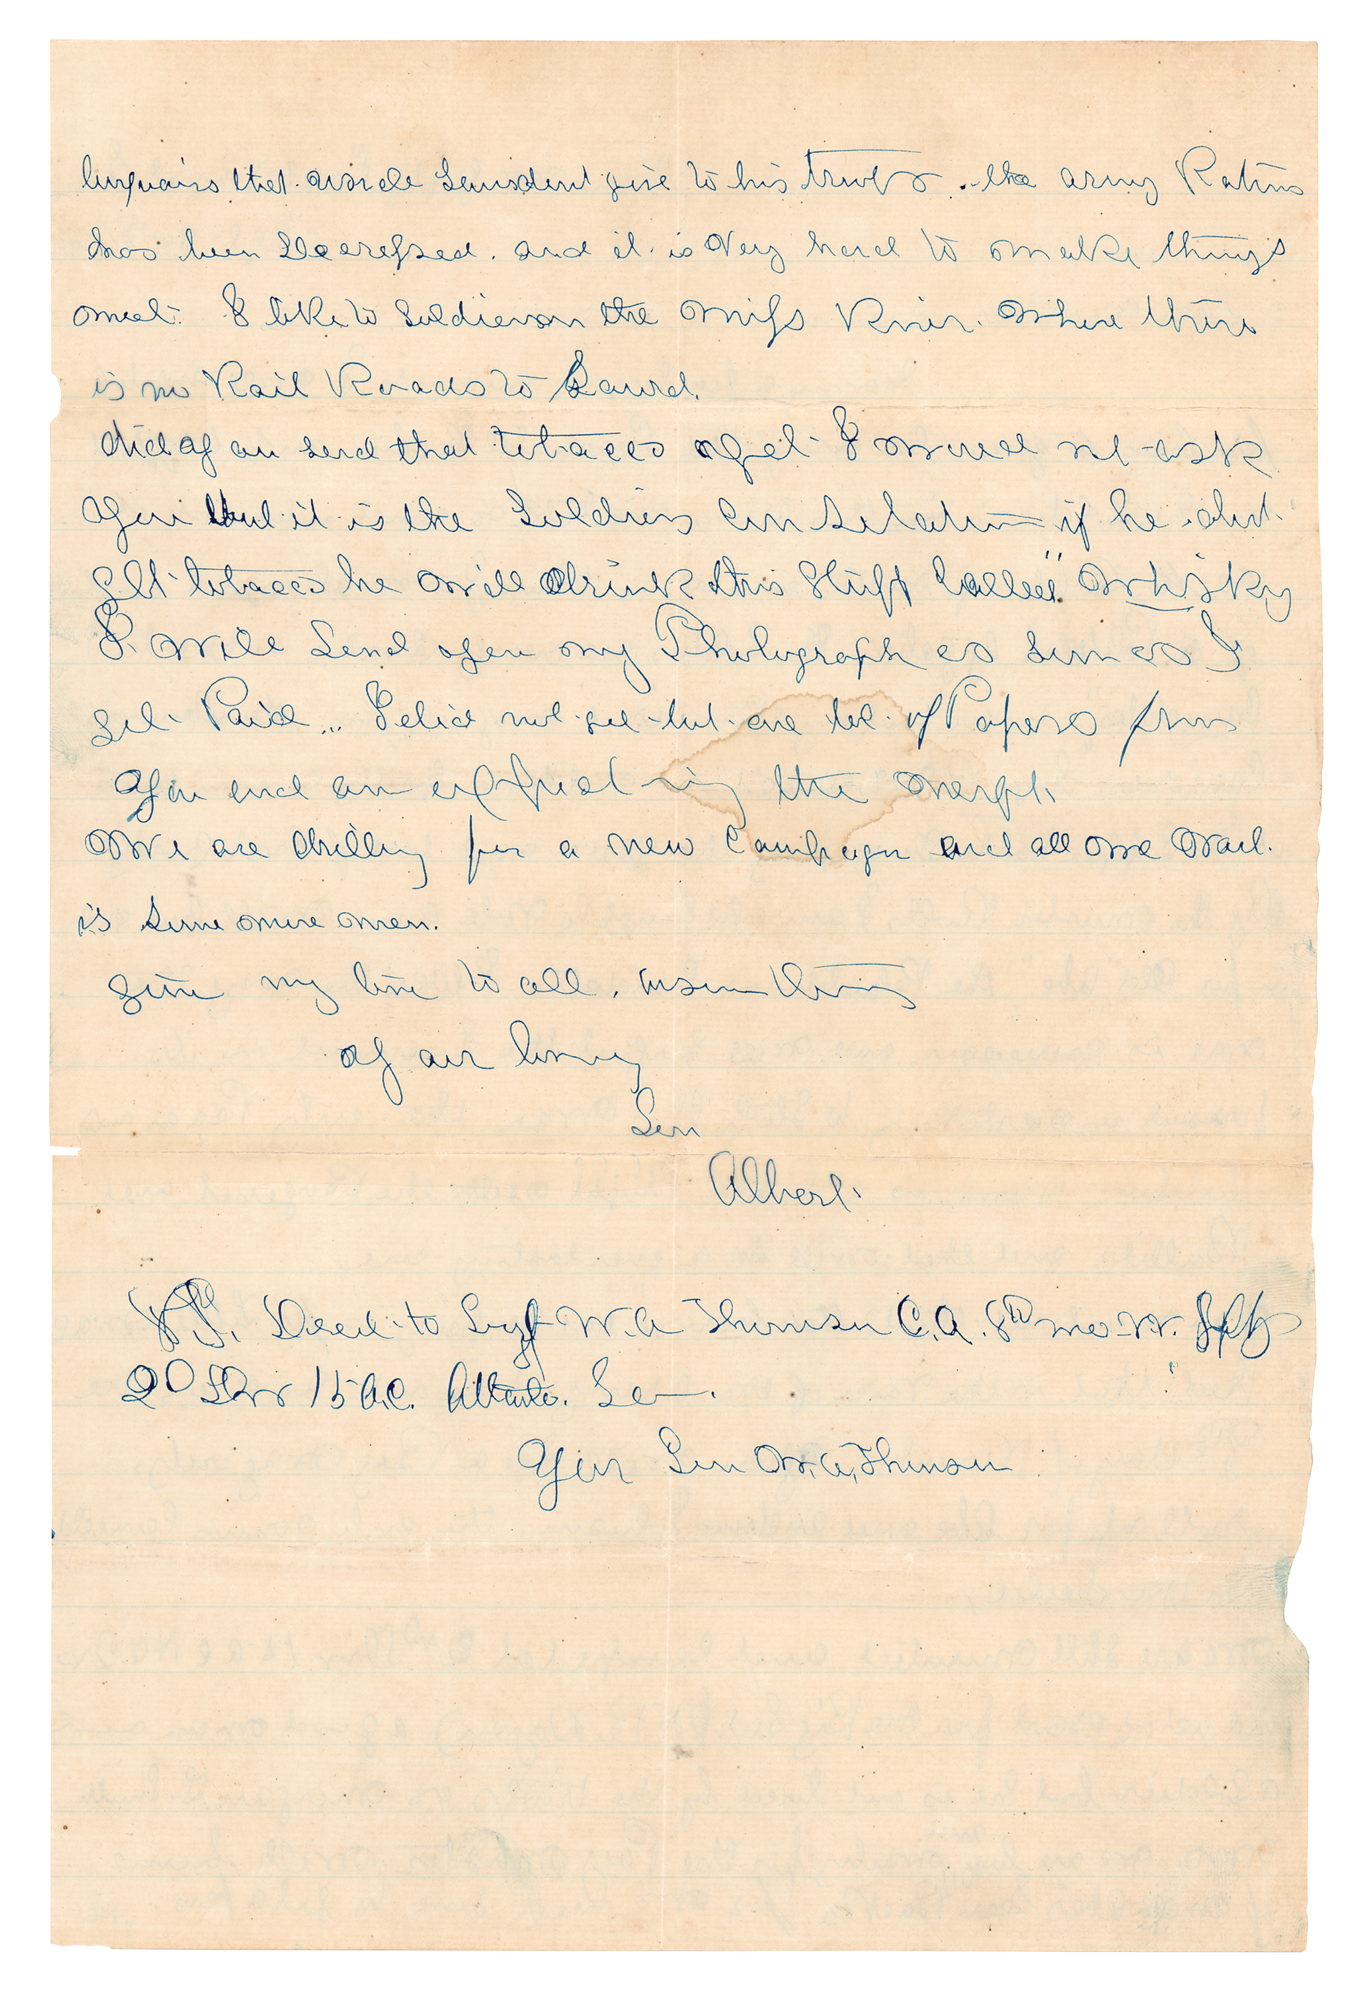 that Uncle give to his troops. the army Rations
has been Decresed. and it is very hard to make things
meet. I like to Soldier on the Miss River. Where there
is no Rail Roads to Gaurd.
did you send that tobacco yet I would not ask
you but it is the Soldiers Consolation if he dont
get tobacco he will drink this Stuff Called "Whisky"
I will Send you my Photograph as soon as I
get Paid... I did not get but one lot of Papers from
you and am expecting the
We are drilling for a new Campaign and all we wait
is some more men.
give my love to all.
your loving
Son
Albert.
P.S. Direct to W.A. Thomson C.A. 8th Mo. V.
20 15 A.C. Atlanta.
Your Son W.A. Thomson